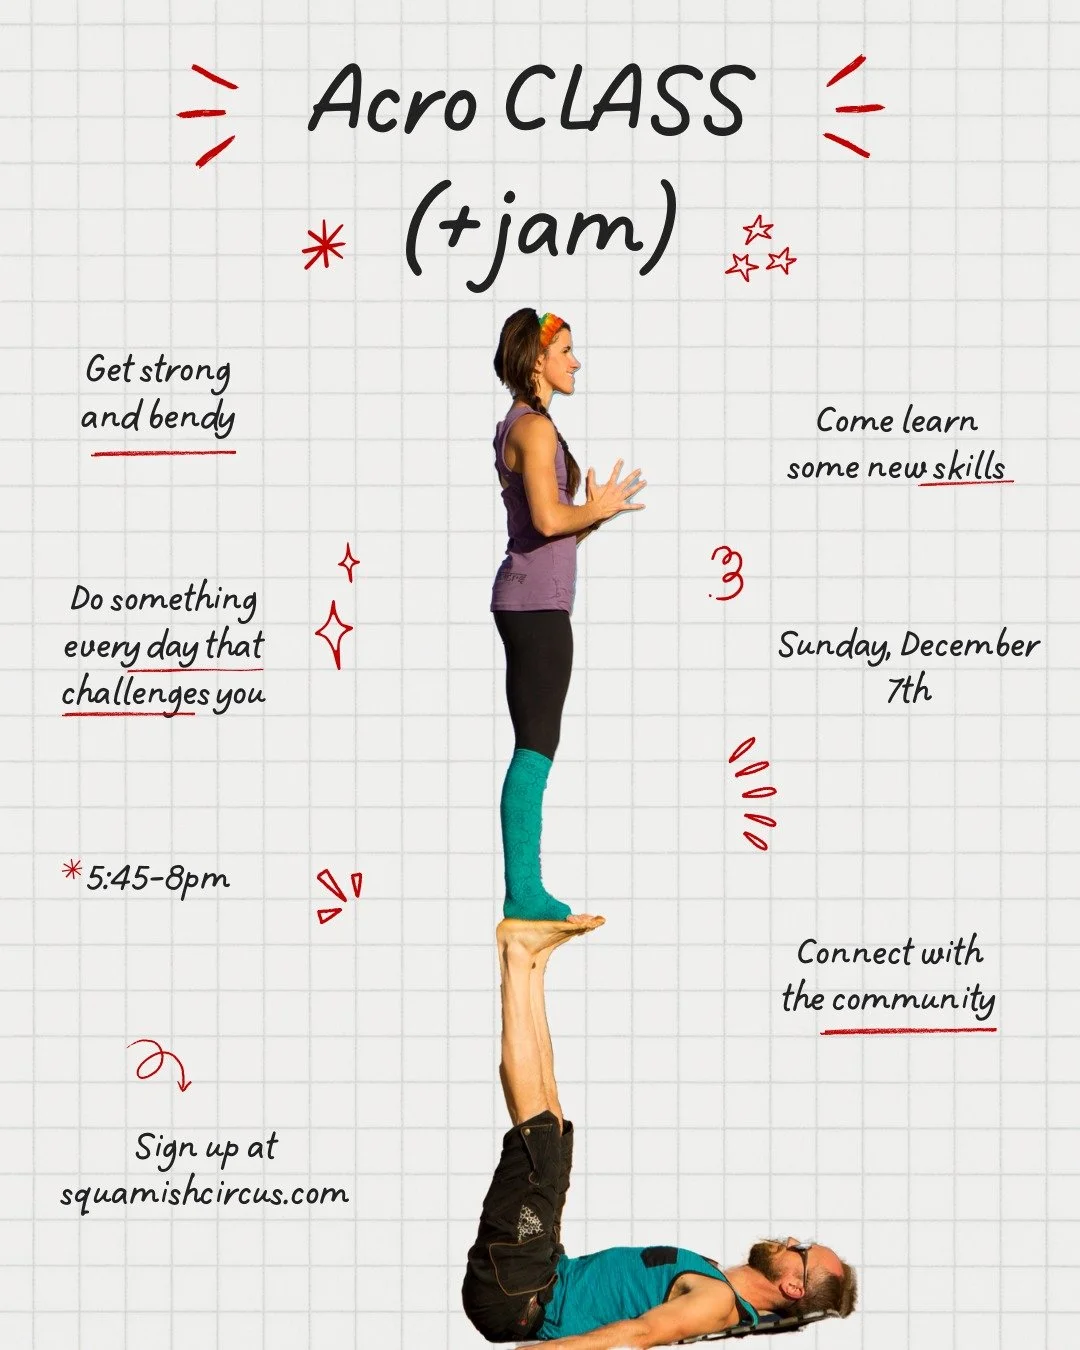 Acro CLASS
(+jam)
Get strong
and bendy
Come learn
some new skills
Do something
every day that
challenges you
Sunday, December
7th
*5:45-8pm
Connect with
the community
Sign up at
squamishcircus.com